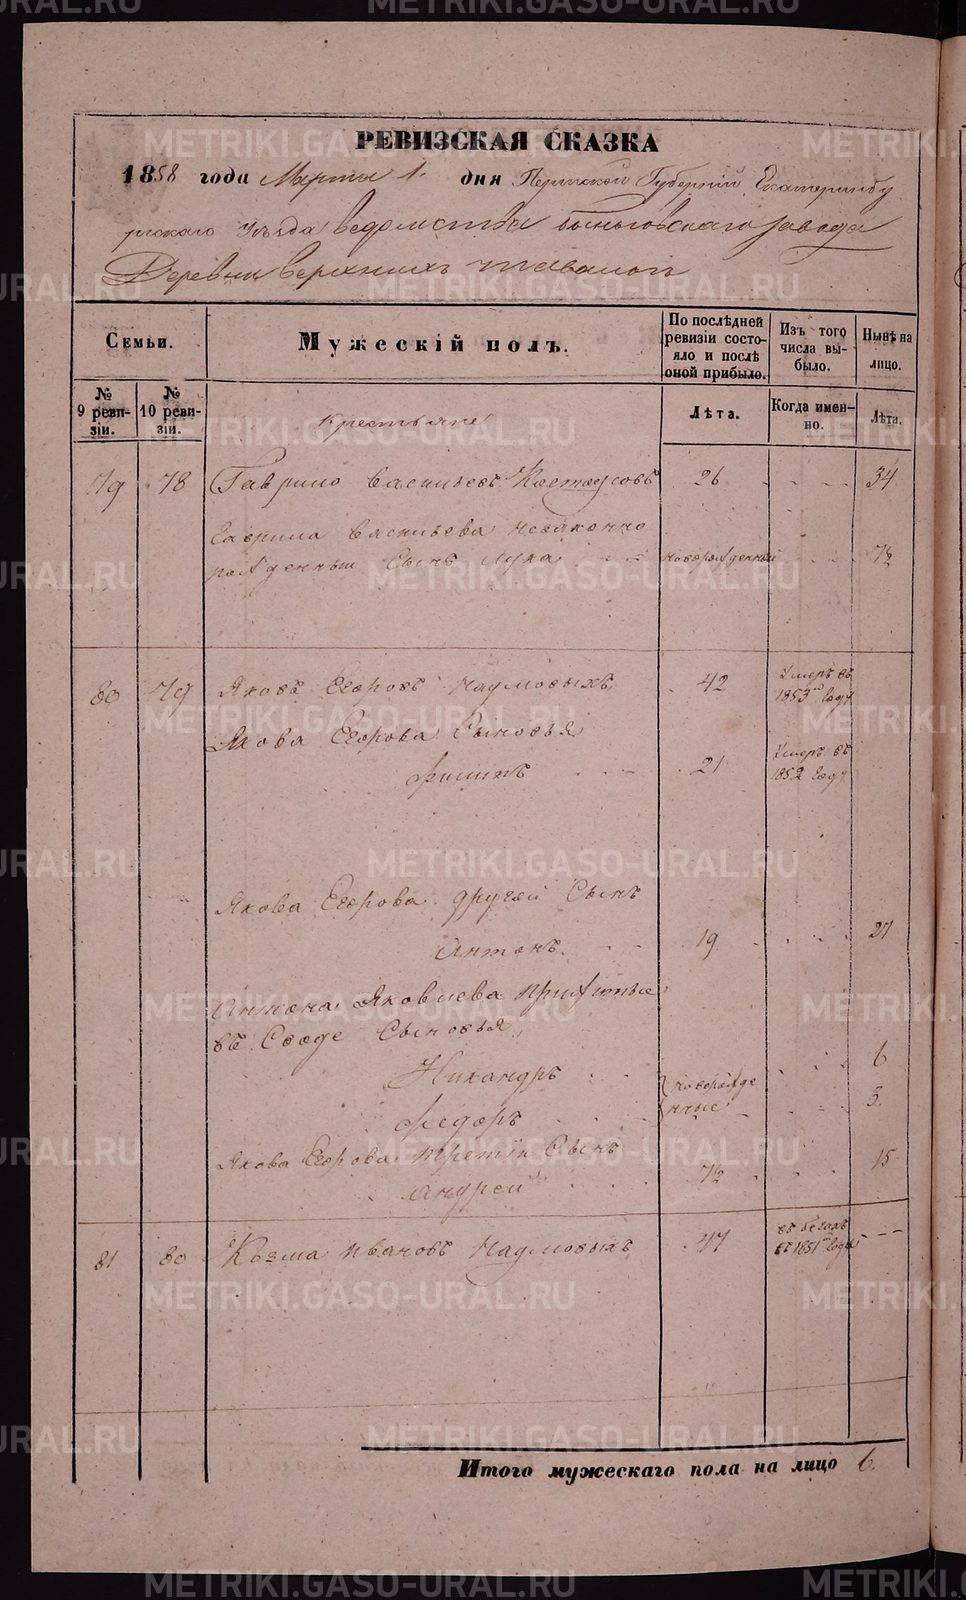 РЕВИЗСКАЯ СКАЗКА
1858 года Марта 1. дня Пермской Губернии Екатеринбу
ргскаго Уезда ведомства Быньговскаго завода
Деревни верхнихъ тавологи
Семьи.
Мужескій полъ.
По послѣдней ревизіи состояло и послѣ оной прибыло.
Изъ того числа выбыло.
Нынѣ на лицо.
№ 9 ревизіи.
№ 10 ревизіи.
Крестьяне
Лѣта.
Когда именно.
Лѣта.
79 78 Гаврило Васильевъ 26 - - - 34
Гаврила Васильева незаконно
рожденный Сынъ Лука новорожденный
80 79 Яковъ Егоровъ Наумовыхъ 42 Умеръ въ 1853м Году
Якова Егорова Сыновья
Филипъ 21 Умеръ въ 1852 Году
Якова Егорова другой Сынъ
Антонъ 19 27
Антона Яковлева прижитые
въ Сыновья
Никандръ новорожде 6
Федоръ нные
Якова Егорова третій Сынъ
Андрей 7½ 15
81 80 Козма Ивановъ Наумовыхъ 47 въ бегахъ съ 1851го Года - - -
Итого мужескаго пола на лицо 6.
METRIKI.GASO-URAL.RU